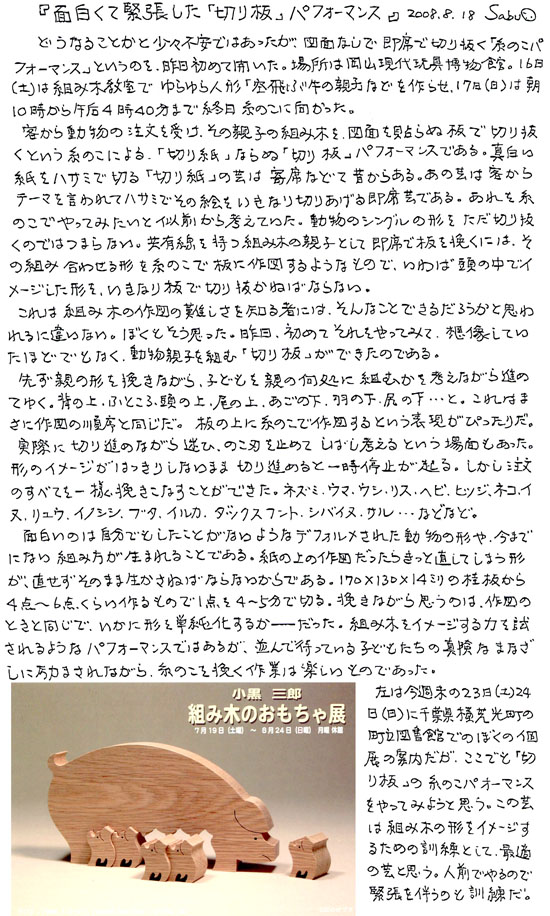 『面白くて緊張した「切り板」パフォーマンス』2008.8.18 Sabu
どうなることかと少々不安ではあったが、図面なしで即席で切り抜く「糸のこパ
フォーマンス」というのを、昨日初めて開いた。場所は岡山現代玩具博物館。16日
(土)は組み木教室で ゆらゆら人形「空飛ぶ牛の親子などを作らせ、17日(日)は朝
10時から午后4時40分まで終日 糸のこに向かった。
客から動物の注文を受け、その親子の組み木を、図面を貼らぬ板で切り抜
くという糸のこによる、「切り紙」ならぬ「切り板」パフォーマンスである。真白い
紙をハサミで切る「切り紙」の芸は 寄席などで昔からある。あの芸は客から
テーマを言われてハサミでその絵をいきなり切りあげる即席芸である。あれを糸
のこでやってみたいと以前から考えていた。動物のシングルの形をただ切り抜
くのではつまらない。共有線を持つ組み木の親子として即席で板を挽くには、そ
の組み合わせる形を糸のこで板に作図するようなもので、いわば頭の中でイ
メージした形を、いきなり板で切り抜かねばならない。
これは組み木の作図の難しさを知る者には、そんなことできるだろうかと思わ
れるに違いない。ぼくもそう思った。昨日、初めてそれをやってみて、想像してい
たほどでもなく、動物親子を組む「切り板」ができたのである。
先ず親の形を挽きながら、子どもを親の何処に組むかを考えながら進め
てゆく。背の上、ふところ、頭の上、尾の上、あごの下、羽の下、尻の下…と。これはま
さに作図の順序と同じだ。板の上に糸のこで作図するという表現がぴったりだ。
実際に切り進めながら迷い、のこ刃を止めてしばし考えるという場面もあった。
形のイメージがはっきりしないまま切り進めると一時停止が起る。しかし注文
のすべてを一様、挽きこなすことができた。ネズミ、ウマ、ウシ、リス、ヘビ、ヒツジ、ネコ、イ
ヌ、リュウ、イノシシ、ブタ、イルカ、ダックスフント、シバイヌ、サル…などなど。
面白いのは自分でもしたことがないようなデフォルメされた動物の形や、今まで
にない組み方が生まれることである。紙の上の作図だったらきっと直してしまう形
が、直せずそのまま生かさねばならないからである。170×130×14ミリの桂板から
4点〜6点くらい作るもので1点を4〜5分で切る。挽きながら思うのは、作図の
ときと同じで、いかに形を単純化するか――だった。組み木をイメージする力を試
されるようなパフォーマンスではあるが、並んで待っている子どもたちの真険なまなざ
しに励まされながら、糸のこを挽く作業は楽しいものであった。
小黒 三郎
組み木のおもちゃ展
7月19日(土曜) 〜 8月24日(日曜) 月曜 休館
左は今週末の23日(土)24
日(日)に千葉県横芝光町の
町立図書館でのぼくの個
展の案内だが、ここでも「切
り板」の糸のこパフォーマンス
をやってみようと思う。この芸
は組み木の形をイメージす
るための訓練として、最適
の芸と思う。人前でやるので
緊張を伴うのも訓練だ。